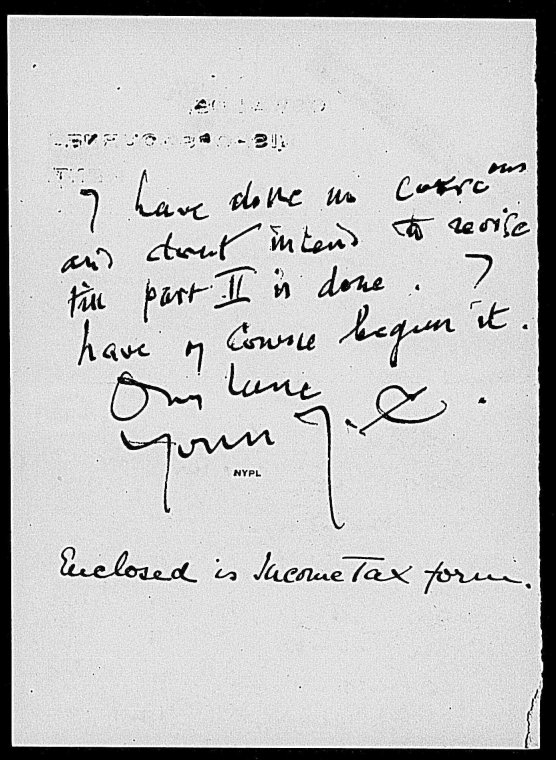 I have done no correcons
and dont intend to revise
till part II is done. I
have of course begun it.
Our love
Yours J. C.
NYPL
Enclosed is Income Tax form.